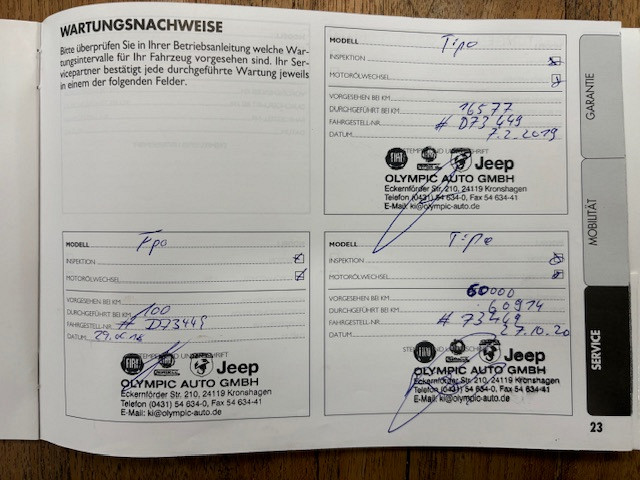 WARTUNGSNACHWEISE
Bitte überprüfen Sie in Ihrer Betriebsanleitung welche War-
tungsintervalle für Ihr Fahrzeug vorgesehen sind. Ihr Ser-
vicepartner bestätigt jede durchgeführte Wartung jeweils
in einem der folgenden Felder.
MODELL Tipo
INSPEKTION
MOTORÖLWECHSEL
VORGESEHEN BEI KM
DURCHGEFÜHRT BEI KM 16577
FAHRGESTELL-NR. # D73449
DATUM 7.2.2019
FIAT Jeep
OLYMPIC AUTO GMBH
Eckernförder Str. 210, 24119 Kronshagen
Telefon (0431) 54 634-0, Fax 54 634-41
E-Mail: ki@olympic-auto.de
MODELL Tipo
INSPEKTION
MOTORÖLWECHSEL
VORGESEHEN BEI KM
DURCHGEFÜHRT BEI KM 100
FAHRGESTELL-NR. # D73449
DATUM
FIAT Jeep
OLYMPIC AUTO GMBH
Eckernförder Str. 210, 24119 Kronshagen
Telefon (0431) 54 634-0, Fax 54 634-41
E-Mail: ki@olympic-auto.de
MODELL Tipo
INSPEKTION
MOTORÖLWECHSEL
VORGESEHEN BEI KM 60000
DURCHGEFÜHRT BEI KM 60914
FAHRGESTELL-NR. # 73449
DATUM 27.10.20
FIAT Jeep
OLYMPIC AUTO GMBH
Eckernförder Str. 210, 24119 Kronshagen
Telefon (0431) 54 634-0, Fax 54 634-41
E-Mail: ki@olympic-auto.de
GARANTIE
MOBILITÄT
SERVICE
23